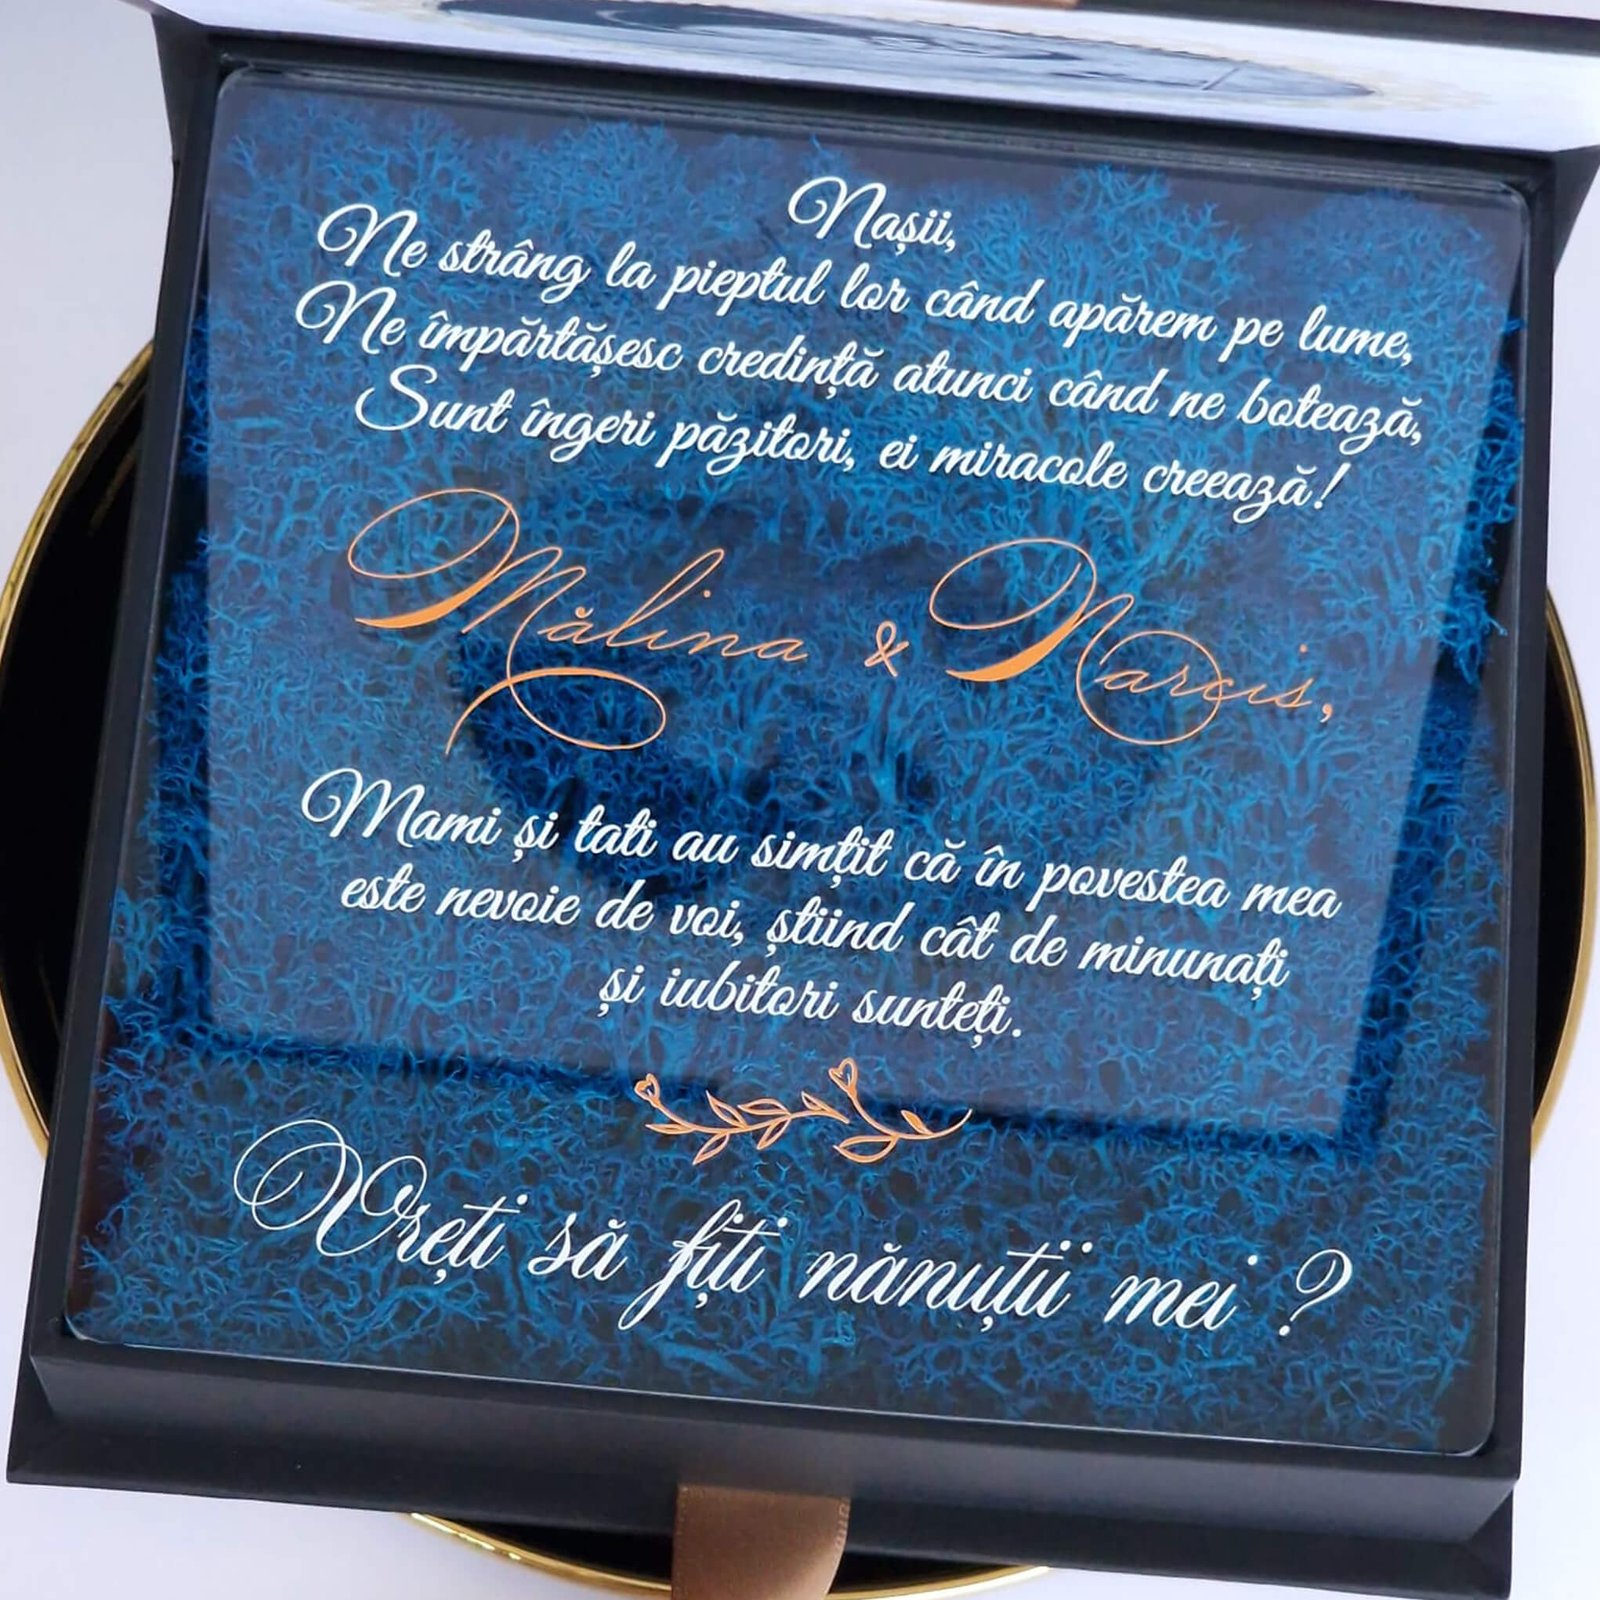 Nașii,
Ne strâng la pieptul lor când apărem pe lume,
Ne împărtășesc credință atunci când ne botează,
Sunt îngeri păzitori, ei miracole creează!
Mălina & Narcis,
Mami și tati au simțit că în povestea mea
este nevoie de voi, știind cât de minunați
și iubitori sunteți.
Vreți să fiți nănuții mei ?